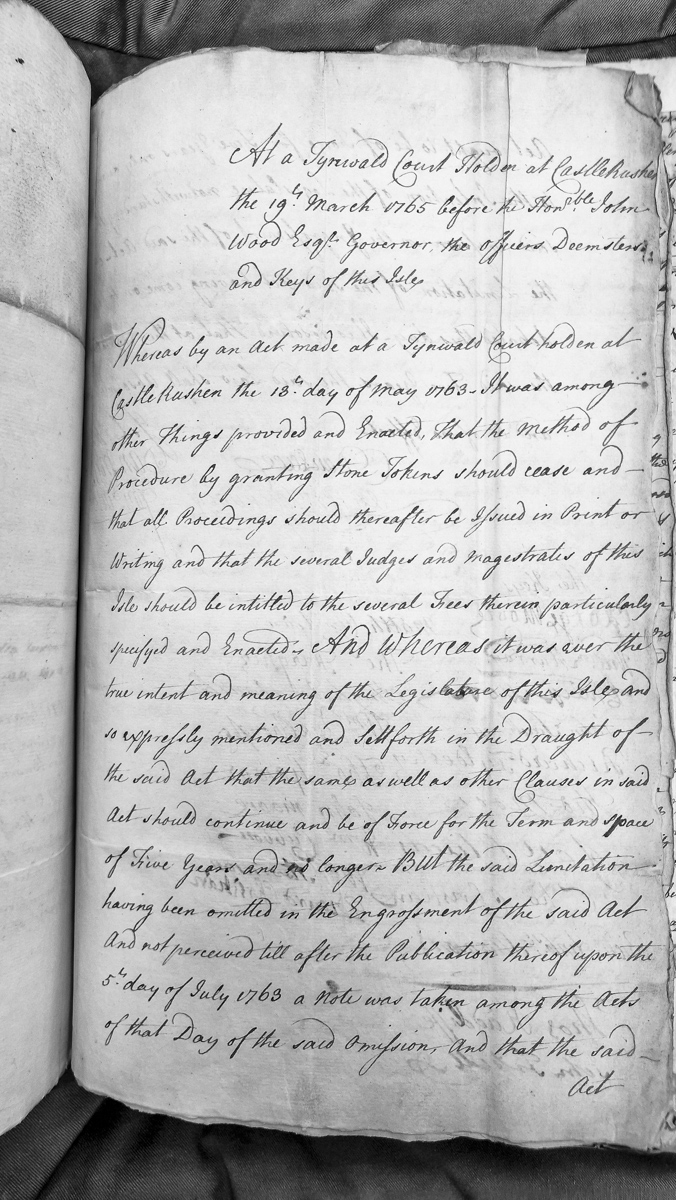 At a Tynwald Court Holden at Castle Rushen
the 19th March 1765 before the Honrble John
Wood Esqr. Governor, the officers Deemsters
and Keys of this Isle
Whereas by an Act made at a Tynwald Court holden at
Castle Rushen the 13th day of May 1763 - It was among
other Things provided and Enacted, That the method of
Procedure by granting Stone Tokens should cease and
that all Proceedings should thereafter be Issued in Print or
Writing and that the several Judges and magestrates of this
Isle should be intitled to the several Fees therein particularly
specifyed and Enacted - And Whereas it was ever the
true intent and meaning of the Legislature of this Isle and
so expressly mentioned and Settforth in the Draught of
the said Act that the same as well as other Clauses in said
Act should continue and be of Force for the Term and space
of Five Years and no longer - But the said Limitation
having been omitted in the Engrossment of the said Act
And not perceived till after the Publication thereof upon the
5th day of July 1763 a Note was taken among the Acts
of that Day of the said Omission, And that the said
Act